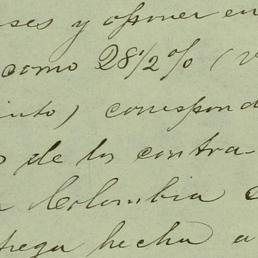 ses y oponer en
como 28½% (v
ento) correspond
o de los contra-
Colombia
trega hecha a